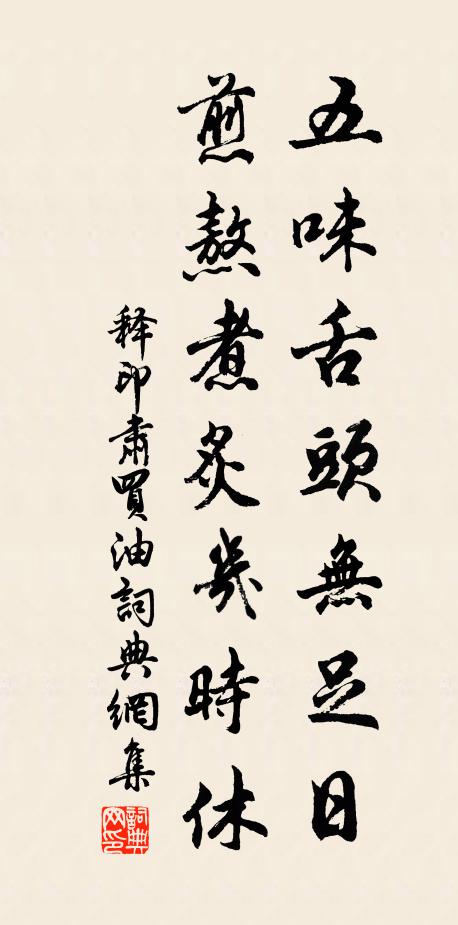 五味舌頭無足日
煎熬煮炙幾時休
释印肅買油詞典網集
詞典网印